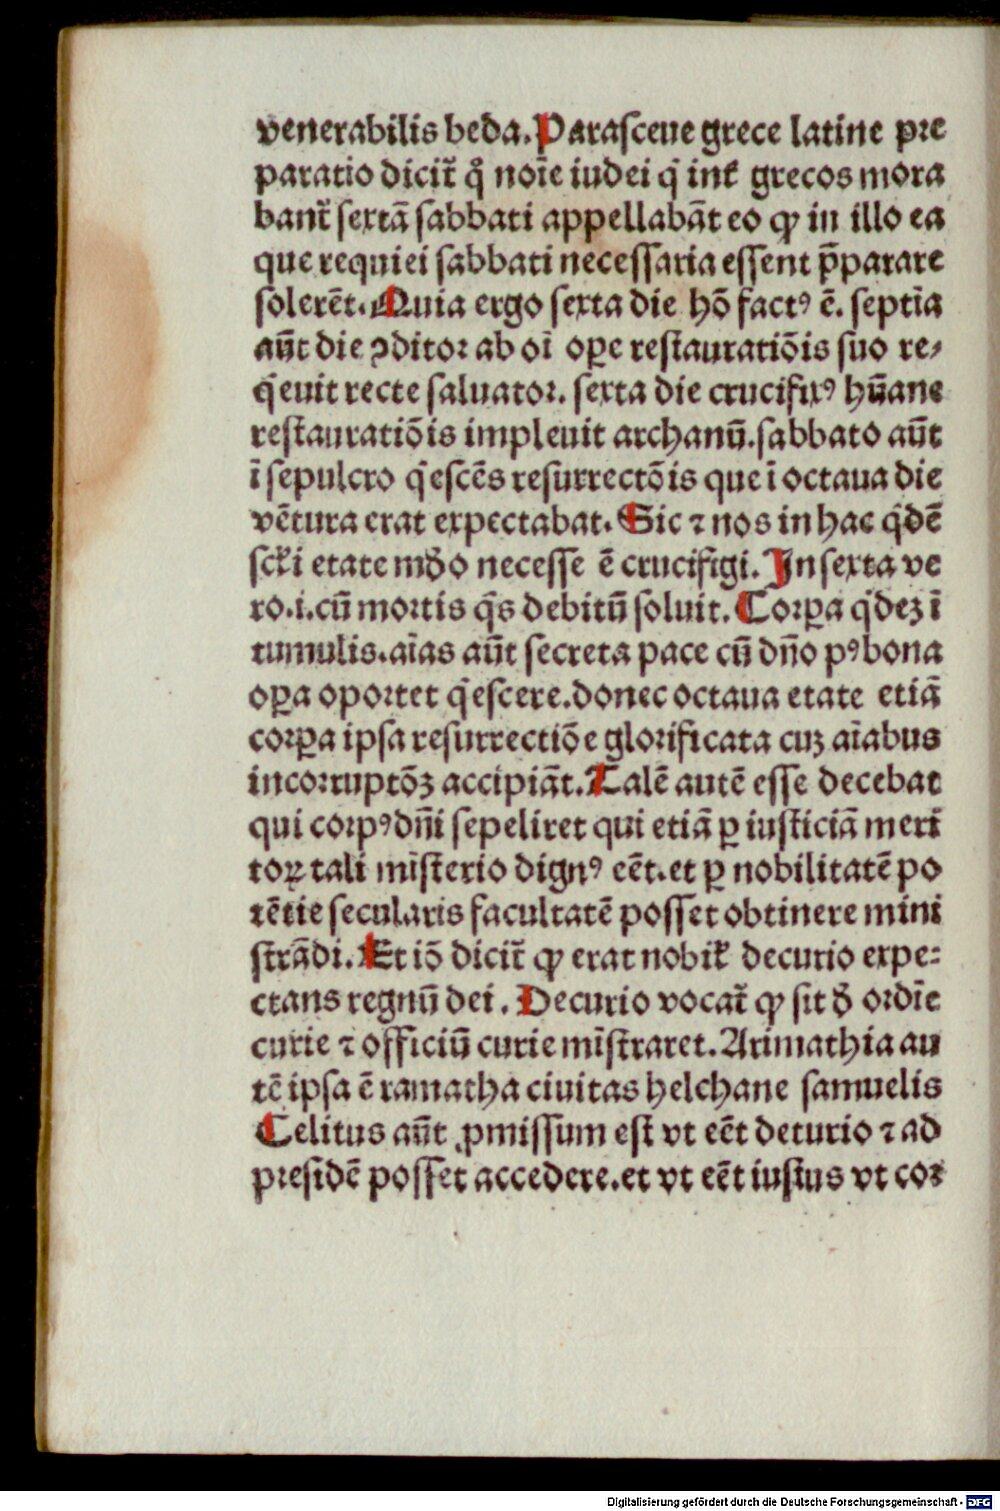 venerabilis beda. Parasceue grece latine pre
paratio dicit᷑ qͦ noīe iudei qͥ int᷑ grecos mora
bant᷑ sextā sabbati appellabāt eo ꝙ in illo ea
que requiei sabbati necessaria essent p̄parare
solerēt. Quia ergo sexta die hō factꝰ ē. septīa
aūt die ꝯditor ab oī oꝑe restauratiōis suo re⸗
qͥeuit recte saluator. sexta die crucifixꝰ hūane
restauratiōis impleuit archanū. sabbato aūt
ī sepulcro qͥescēs resurrectōis que ī octaua die
vētura erat expectabat. Sic ⁊ nos in hac qͥdē
scĺi etate mūdo necesse ē crucifigi. In sexta ve
ro .i. cū mortis qͥs debitū soluit. Corꝑa qͥdeꝫ ī
tumulis. aīas aūt secreta pace cū dn̄o pꝰ bona
oꝑa oportet qͥescere. donec octaua etate etiā
corꝑa ipsa resurrectiōe glorificata cuꝫ aīabus
incorruptōꝫ accipiāt. Talē autē esse decebat
qui corpꝰ dn̄i sepeliret qui etiā ꝑ iusticiā meri
toꝝ tali mīsterio dignꝰ eēt. et ꝑ nobilitatē po
tētie secularis facultatē posset obtinere mini
strādi. Et iō dicit᷑ ꝙ erat nobil᷑ decurio expe⸗
ctans regnū dei. Decurio vocat᷑ ꝙ sit đ ordīe
curie ⁊ officiū curie mīstraret. Arimathia au
tē ipsa ē ramatha ciuitas helchane samuelis
Celitus aūt ꝓmissum est vt eēt decurio ⁊ ad
presidē posset accedere. et vt eēt iustus vt cor
Digitalisierung gefördert durch die Deutsche Forschungsgemeinschaft - DFG